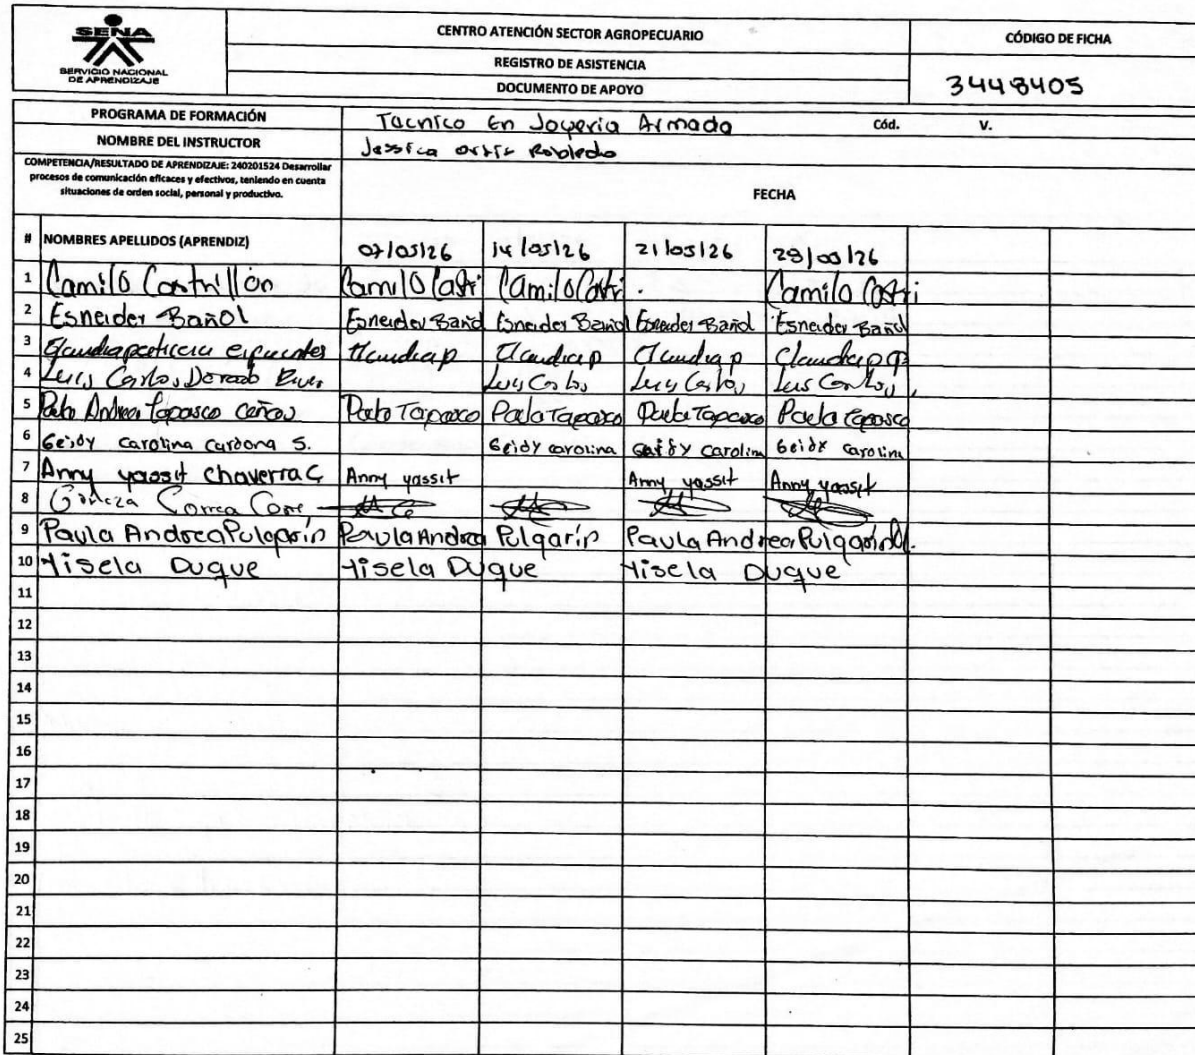 SENA
SERVICIO NACIONAL
DE APRENDIZAJE
CENTRO ATENCIÓN SECTOR AGROPECUARIO
REGISTRO DE ASISTENCIA
DOCUMENTO DE APOYO
CÓDIGO DE FICHA
3448405
PROGRAMA DE FORMACIÓN Tecnico En Joyeria Armada Cód. V.
NOMBRE DEL INSTRUCTOR Jessica Ortiz Robledo
COMPETENCIA/RESULTADO DE APRENDIZAJE: 240201524 Desarrollar
procesos de comunicación eficaces y efectivos, teniendo en cuenta
situaciones de orden social, personal y productivo.
FECHA
# NOMBRES APELLIDOS (APRENDIZ) 07/05/26 14/05/26 21/05/26 28/05/26
1 Camilo Castrillón Camilo Castri Camilo Castri Camilo Castri
2 Esneider Bañol Esneider Bañol Esneider Bañol Esneider Bañol Esneider Bañol
3 Claudia patricia Claudia p Claudia p Claudia p Claudia p
4 Luis Carlos Dorado Luis Carlos Luis Carlos Luis Carlos
5 Paola Andrea Tapasco Paola Tapasco Paola Tapasco Paola Tapasco Paola Tapasco
6 Geidy Carolina Cardona S. Geidy carolina Geidy Carolina Geidy Carolina
7 Anny yassit Chaverra C Anny yassit Anny yassit Anny yassit
8 Correa
9 Paula Andrea Pulgarín Paula Andrea Pulgarín Paula Andrea Pulgarín
10 Yisela Duque Yisela Duque Yisela Duque
11
12
13
14
15
16
17
18
19
20
21
22
23
24
25